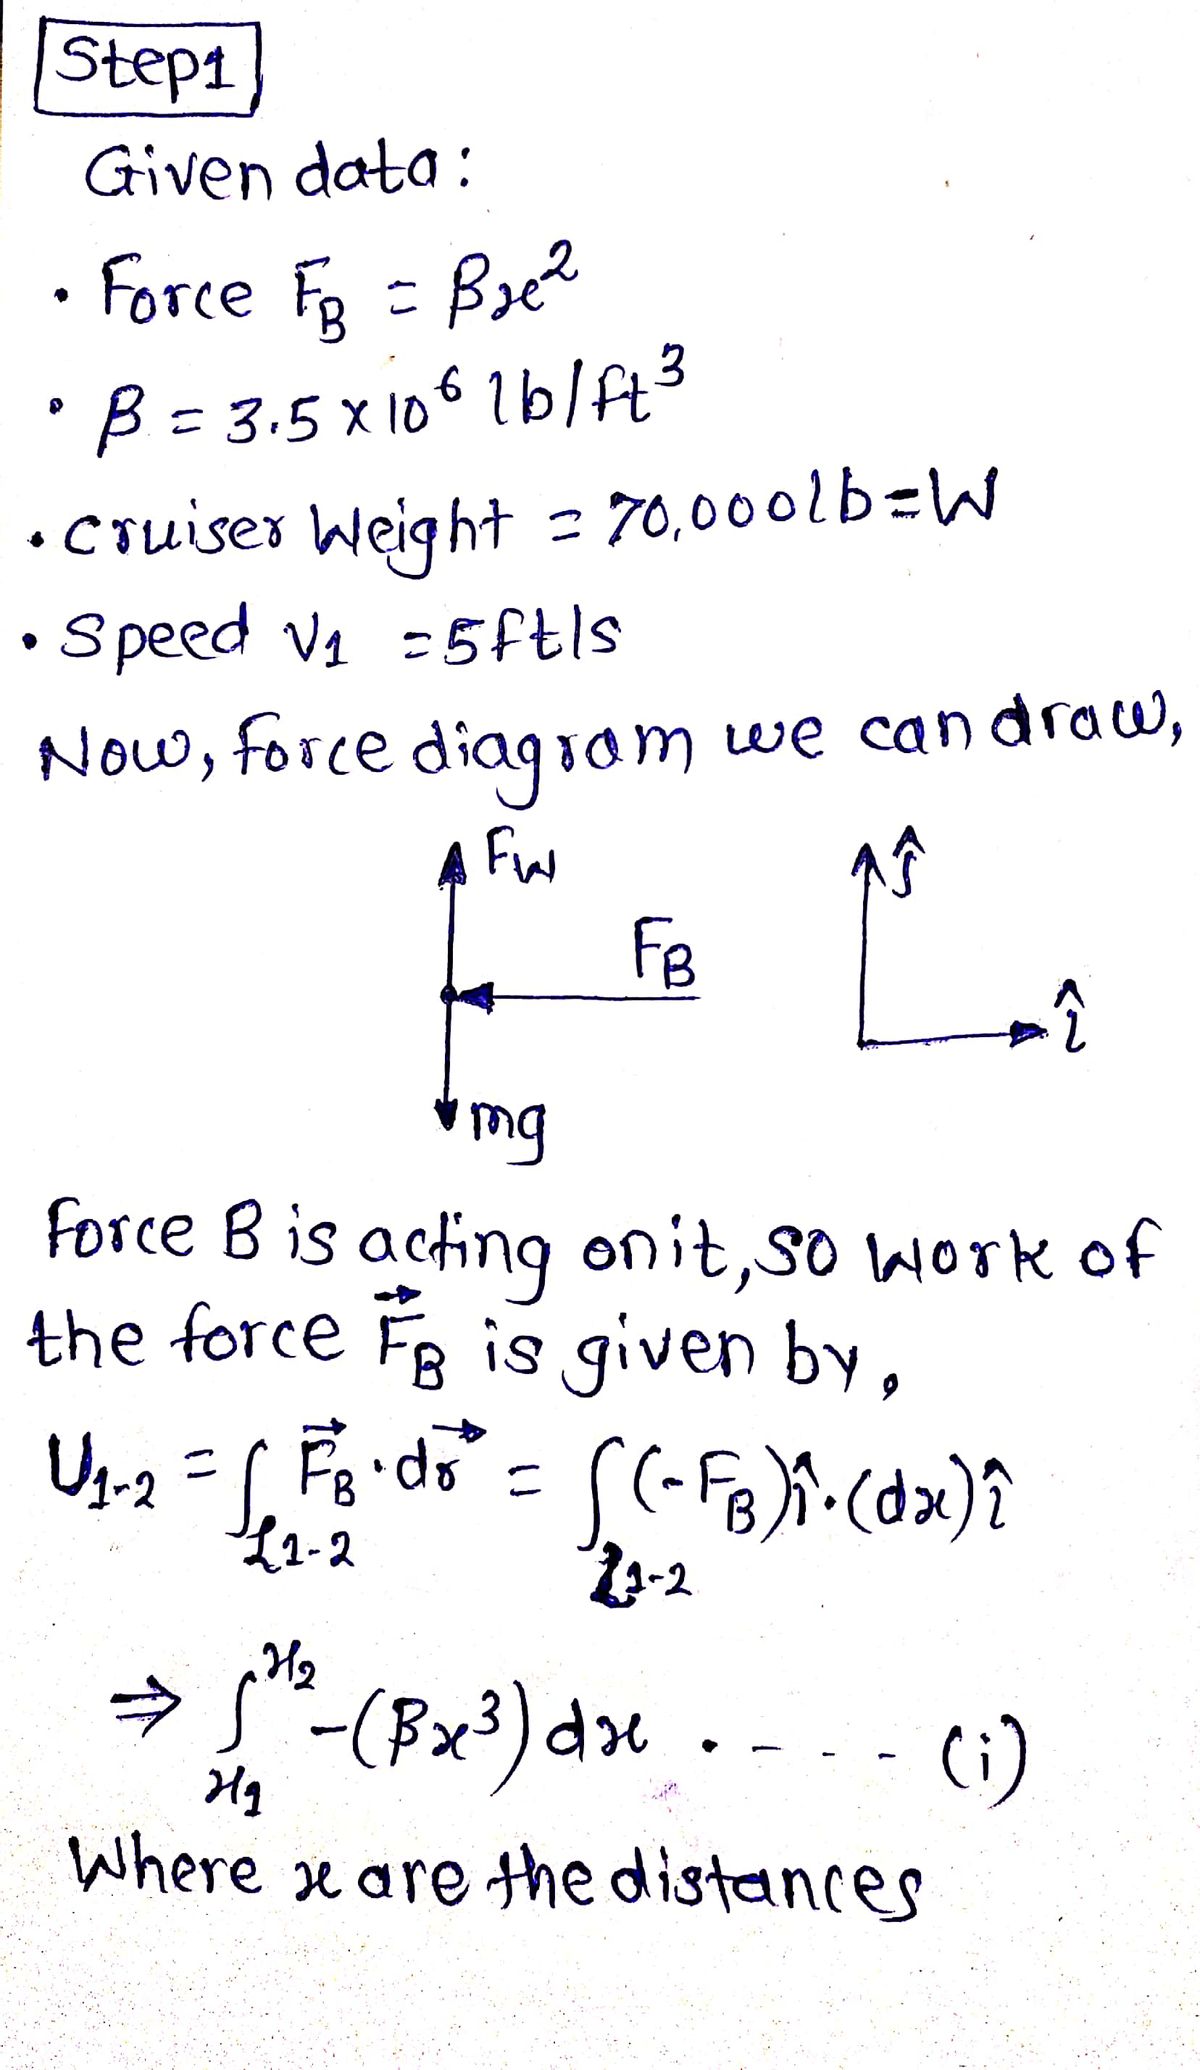 Step1
Given data:
• Force F_B = βx²
• β = 3.5 x 10⁶ lb/ft³
• Cruiser Weight = 70,000lb=W
• Speed V₁ =5ft/s
Now, force diagram we can draw,
F_W
ĵ
F_B
î
mg
Force B is acting on it, so work of
the force F⃗_B is given by,
U₁₋₂ = ∫_{L1-2} F⃗_B · dr⃗ = ∫_{L1-2} (-F_B)î·(dx)î
⇒ ∫_{x₁}^{x₂} -(βx³) dx . - - - - (i)
Where x are the distances